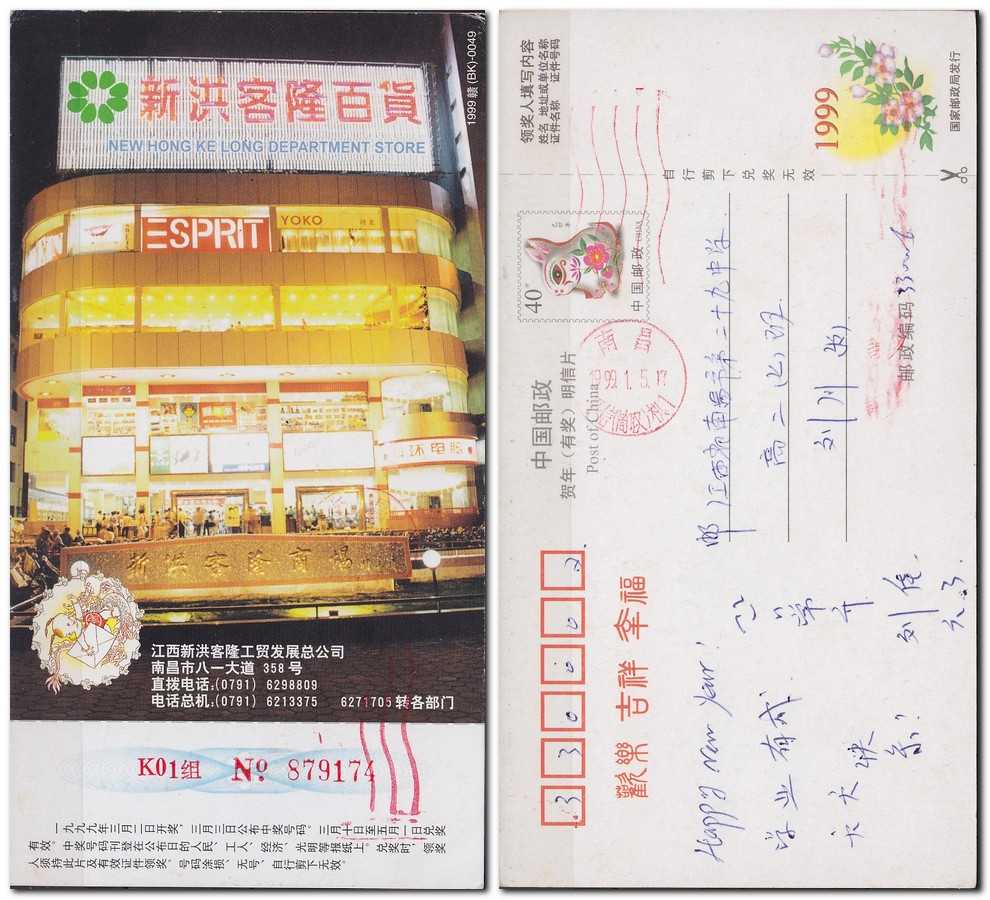 1999 赣 (BK)-0049
新洪客隆百貨
NEW HONG KE LONG DEPARTMENT STORE
ESPRIT
YOKO
新洪客隆商場
江西新洪客隆工贸发展总公司
南昌市八一大道 358 号
直拨电话:(0791) 6298809
电话总机:(0791) 6213375 6271705 转各部门
K01组 No 879174
一九九九年三月二日开奖，三月三日公布中奖号码，三月十日至五月一日兑奖
有效。中奖号码刊登在公布日的人民、工人、经济、光明等报纸上。兑奖时，领奖
人须持此片及有效证件领奖。号码涂损、无号、自行剪下无效。
领奖人填写内容
姓名 地址或单位名称
证件名称 证件号码
1999
国家邮政局发行
自行剪下兑奖无效
40
中国邮政
CHINA
南昌
1999.1.5.17
中国邮政
贺年（有奖）明信片
Post of China
330002
邮 江西省南昌市第二十九中学
高二
刘
邮政编码
歡樂 吉祥 幸福
Happy New Year!
学业有成
天天
刘